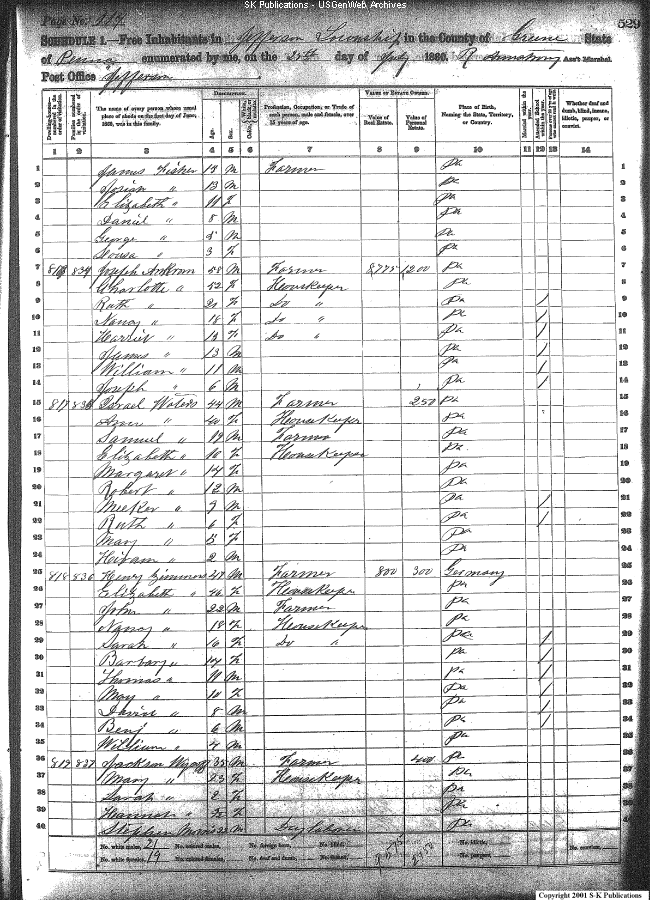 SK Publications - USGenWeb Archives
Page No. 529
SCHEDULE 1.—Free Inhabitants in Jefferson Township in the County of Greene State
of Penna enumerated by me, on the 20th day of July 1860. R Armstrong Ass't Marshal.
Post Office Jefferson
DESCRIPTION. VALUE OF ESTATE OWNED.
Dwelling-houses—numbered in the order of visitation. Families numbered in the order of visitation. The name of every person whose usual place of abode on the first day of June, 1860, was in this family. Age. Sex. Color. Profession, Occupation, or Trade of each person, male and female, over 15 years of age. Value of Real Estate. Value of Personal Estate. Place of Birth, Naming the State, Territory, or Country. Married within the year. Attended School within the year. Whether deaf and dumb, blind, insane, idiotic, pauper, or convict.
1 2 3 4 5 6 7 8 9 10 11 12 13 14
1 James Fisher M Farmer Pa 1
2 Josiah " 13 M Pa 2
3 Elizabeth " 11 F Pa 3
4 Daniel " 8 M Pa 4
5 George " 5 M Pa 5
6 " 3 F Pa 6
7 834 Joseph Ankrom 58 M Farmer 8,775 1,200 Pa 7
8 Charlotte " 52 F Housekeeper Pa 8
9 Ruth " 21 F Do " Pa / 9
10 Nancy " 18 F Do " Pa / 10
11 Harriet " F Do " Pa / 11
12 James " 13 M Pa / 12
13 William " 11 M Pa / 13
14 Joseph " 6 M Pa / 14
15 817 Israel Waters 44 M Farmer 250 Pa 15
16 " 40 F Housekeeper Pa 16
17 Samuel " 19 M Farmer Pa 17
18 Elizabeth " F Housekeeper Pa 18
19 Margaret " 14 F Pa 19
20 Robert " 12 M Pa 20
21 Meeker " 9 M Pa / 21
22 Ruth " 6 F Pa / 22
23 Mary " 5 F Pa 23
24 Heiram " 2 M Pa 24
25 818 836 Henry Zimmers M Farmer 800 300 Germany 25
26 Elizabeth " 46 F Housekeeper Pa 26
27 John " 22 M Farmer Pa 27
28 Nancy " 18 F Housekeeper Pa 28
29 Sarah " 16 F Do " Pa / 29
30 Barbary " 14 F Pa / 30
31 Thomas " 11 M Pa / 31
32 May " 10 F Pa / 32
33 David " 8 M Pa / 33
34 Benj " 6 M Pa / 34
35 William " 4 M Pa 35
36 819 837 Jackson 35 M Farmer 400 Pa 36
37 Mary " 23 F Housekeeper Pa 37
38 Sarah " 2 F Pa 38
39 Hannah " F Pa 39
40 Stephen M Day laborer Pa 40
No. white males, 21 No. colored males, No. foreign born, No. blind, No. idiotic, No. convicts,
No. white females, 19 No. colored females, No. deaf and dumb, No. insane, No. paupers,
Copyright 2001 S-K Publications